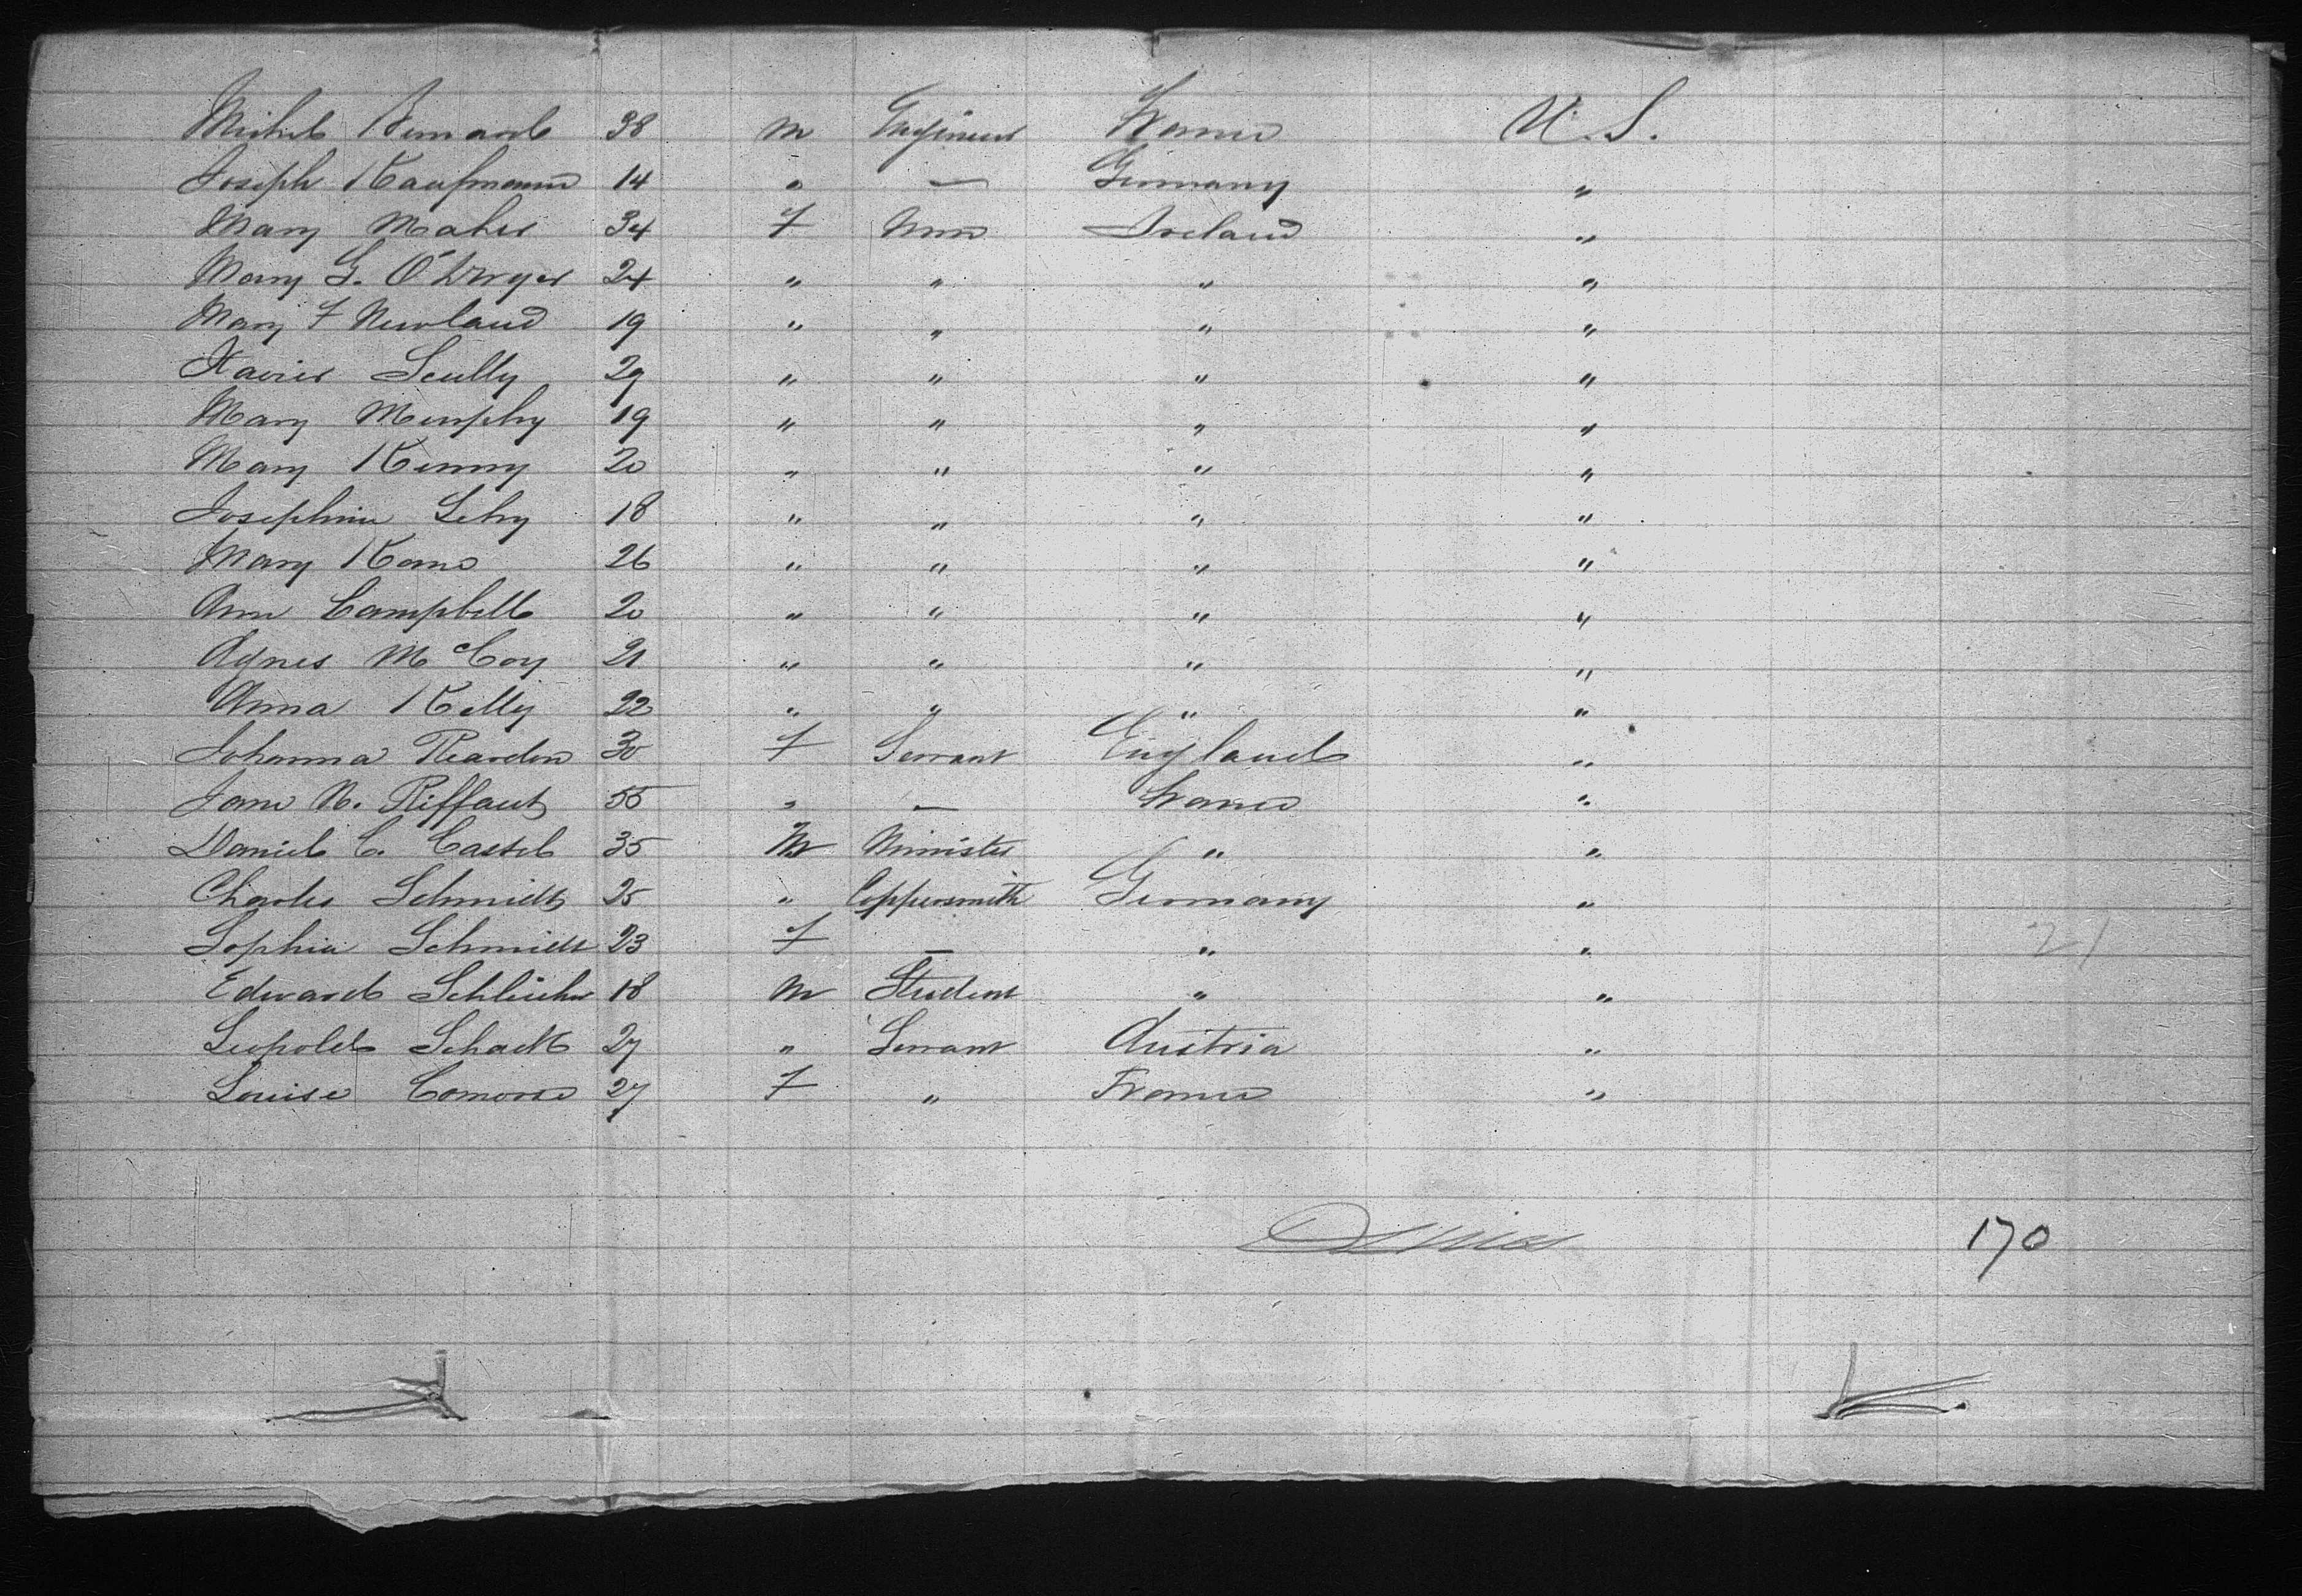 Michel Bernard 38 M Engineer France U.S.
Joseph Kaufmann 14 " — Germany "
Mary Maher 34 F Nun Ireland "
Mary G. O'Dwyer 24 " " " "
Mary F Newland 19 " " " "
Xavier Scully 29 " " " "
Mary Murphy 19 " " " "
Mary Kenny 20 " " " "
Josephine 18 " " " "
Mary Kane 26 " " " "
Ann Campbell 20 " " " "
Agnes McCoy 21 " " " "
Anna Kelly 22 " " " "
Johanna Reardon 30 F Servant England "
Jane N. Riffaut 55 " — France "
Daniel C. 35 M Minister " "
Charles Schmidt 25 " Coppersmith Germany "
Sophia Schmidt 23 F — " " 21
Edward 18 M Student " "
Leopold 27 " Servant Austria "
Louise 27 F " France "
170